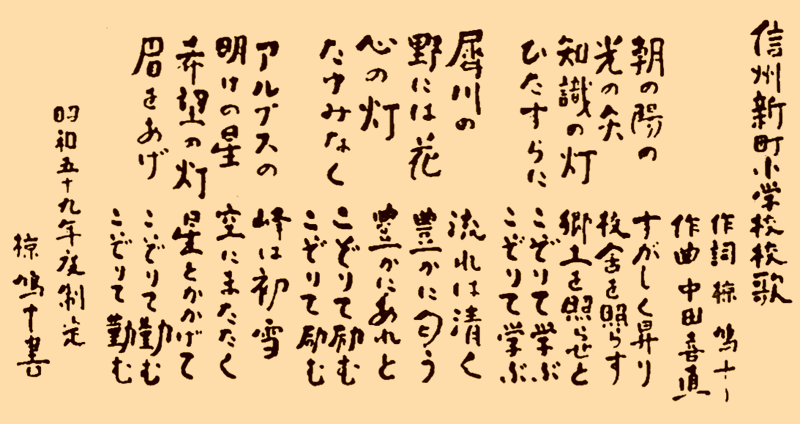 信州新町小学校校歌
作詞 椋 鳩十
作曲 中田喜直
朝の陽の すがしく昇り
光の矢 校舎を照らす
知識の灯 郷土を照らせと
ひたすらに こぞりて学ぶ
こぞりて学ぶ
犀川の 流れは清く
野には花 豊かに匂う
心の灯 豊かにあれと
たゆみなく こぞりて励む
こぞりて励む
アルプスの 峰は初雪
明けの星 空にまたたく
希望の灯 星とかかげて
眉をあげ こぞりて勤む
こぞりて勤む
昭和五十九年度制定
椋鳩十書